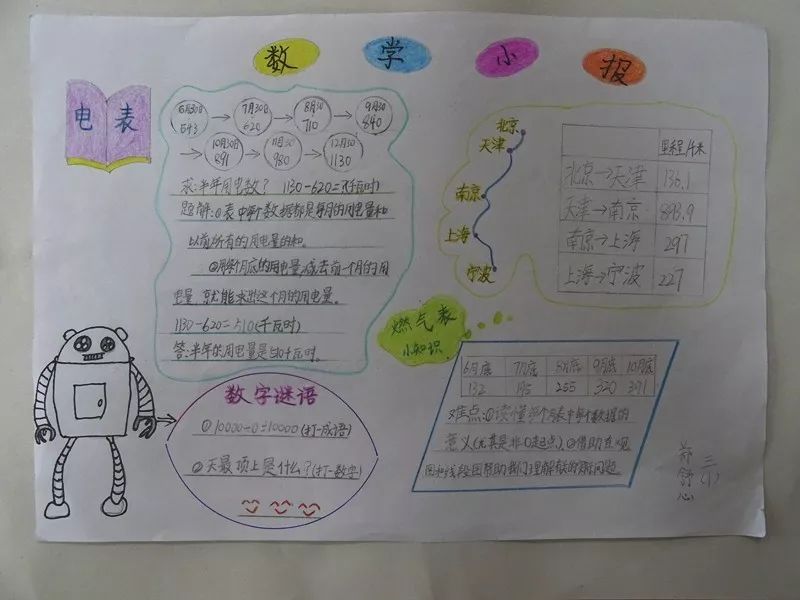 数学小报
电表
6月30日 543
7月30日 620
8月30 710
9月30 840
10月30日 891
11月30 980
12月30日 1130
求:半年用电数? 1130-620=?(千瓦时)
题解:①表中每个数据都是每月的用电量和
以前所有的用电量的和。
②用每个月底的用电量减去前一个月的用
电量,就能求出这个月的用电量。
1130-620=510(千瓦时)
答:半年的用电量是510千瓦时。
数字谜语
①10000-0=10000(打一成语)
②天最顶上是什么?(打一数字)
北京
天津
南京
上海
宁波
里程/千米
北京→天津 136.1
天津→南京 893.9
南京→上海 297
上海→宁波 227
燃气表
小知识
6月底 7月底 8月底 9月底 10月底
132 195 255 320 391
难点:①读懂每个表中每个数据的
意义(尤其是非0起点)。②借助直观
图和线段图帮助我们理解有关的实际问题
三(1)
舒心